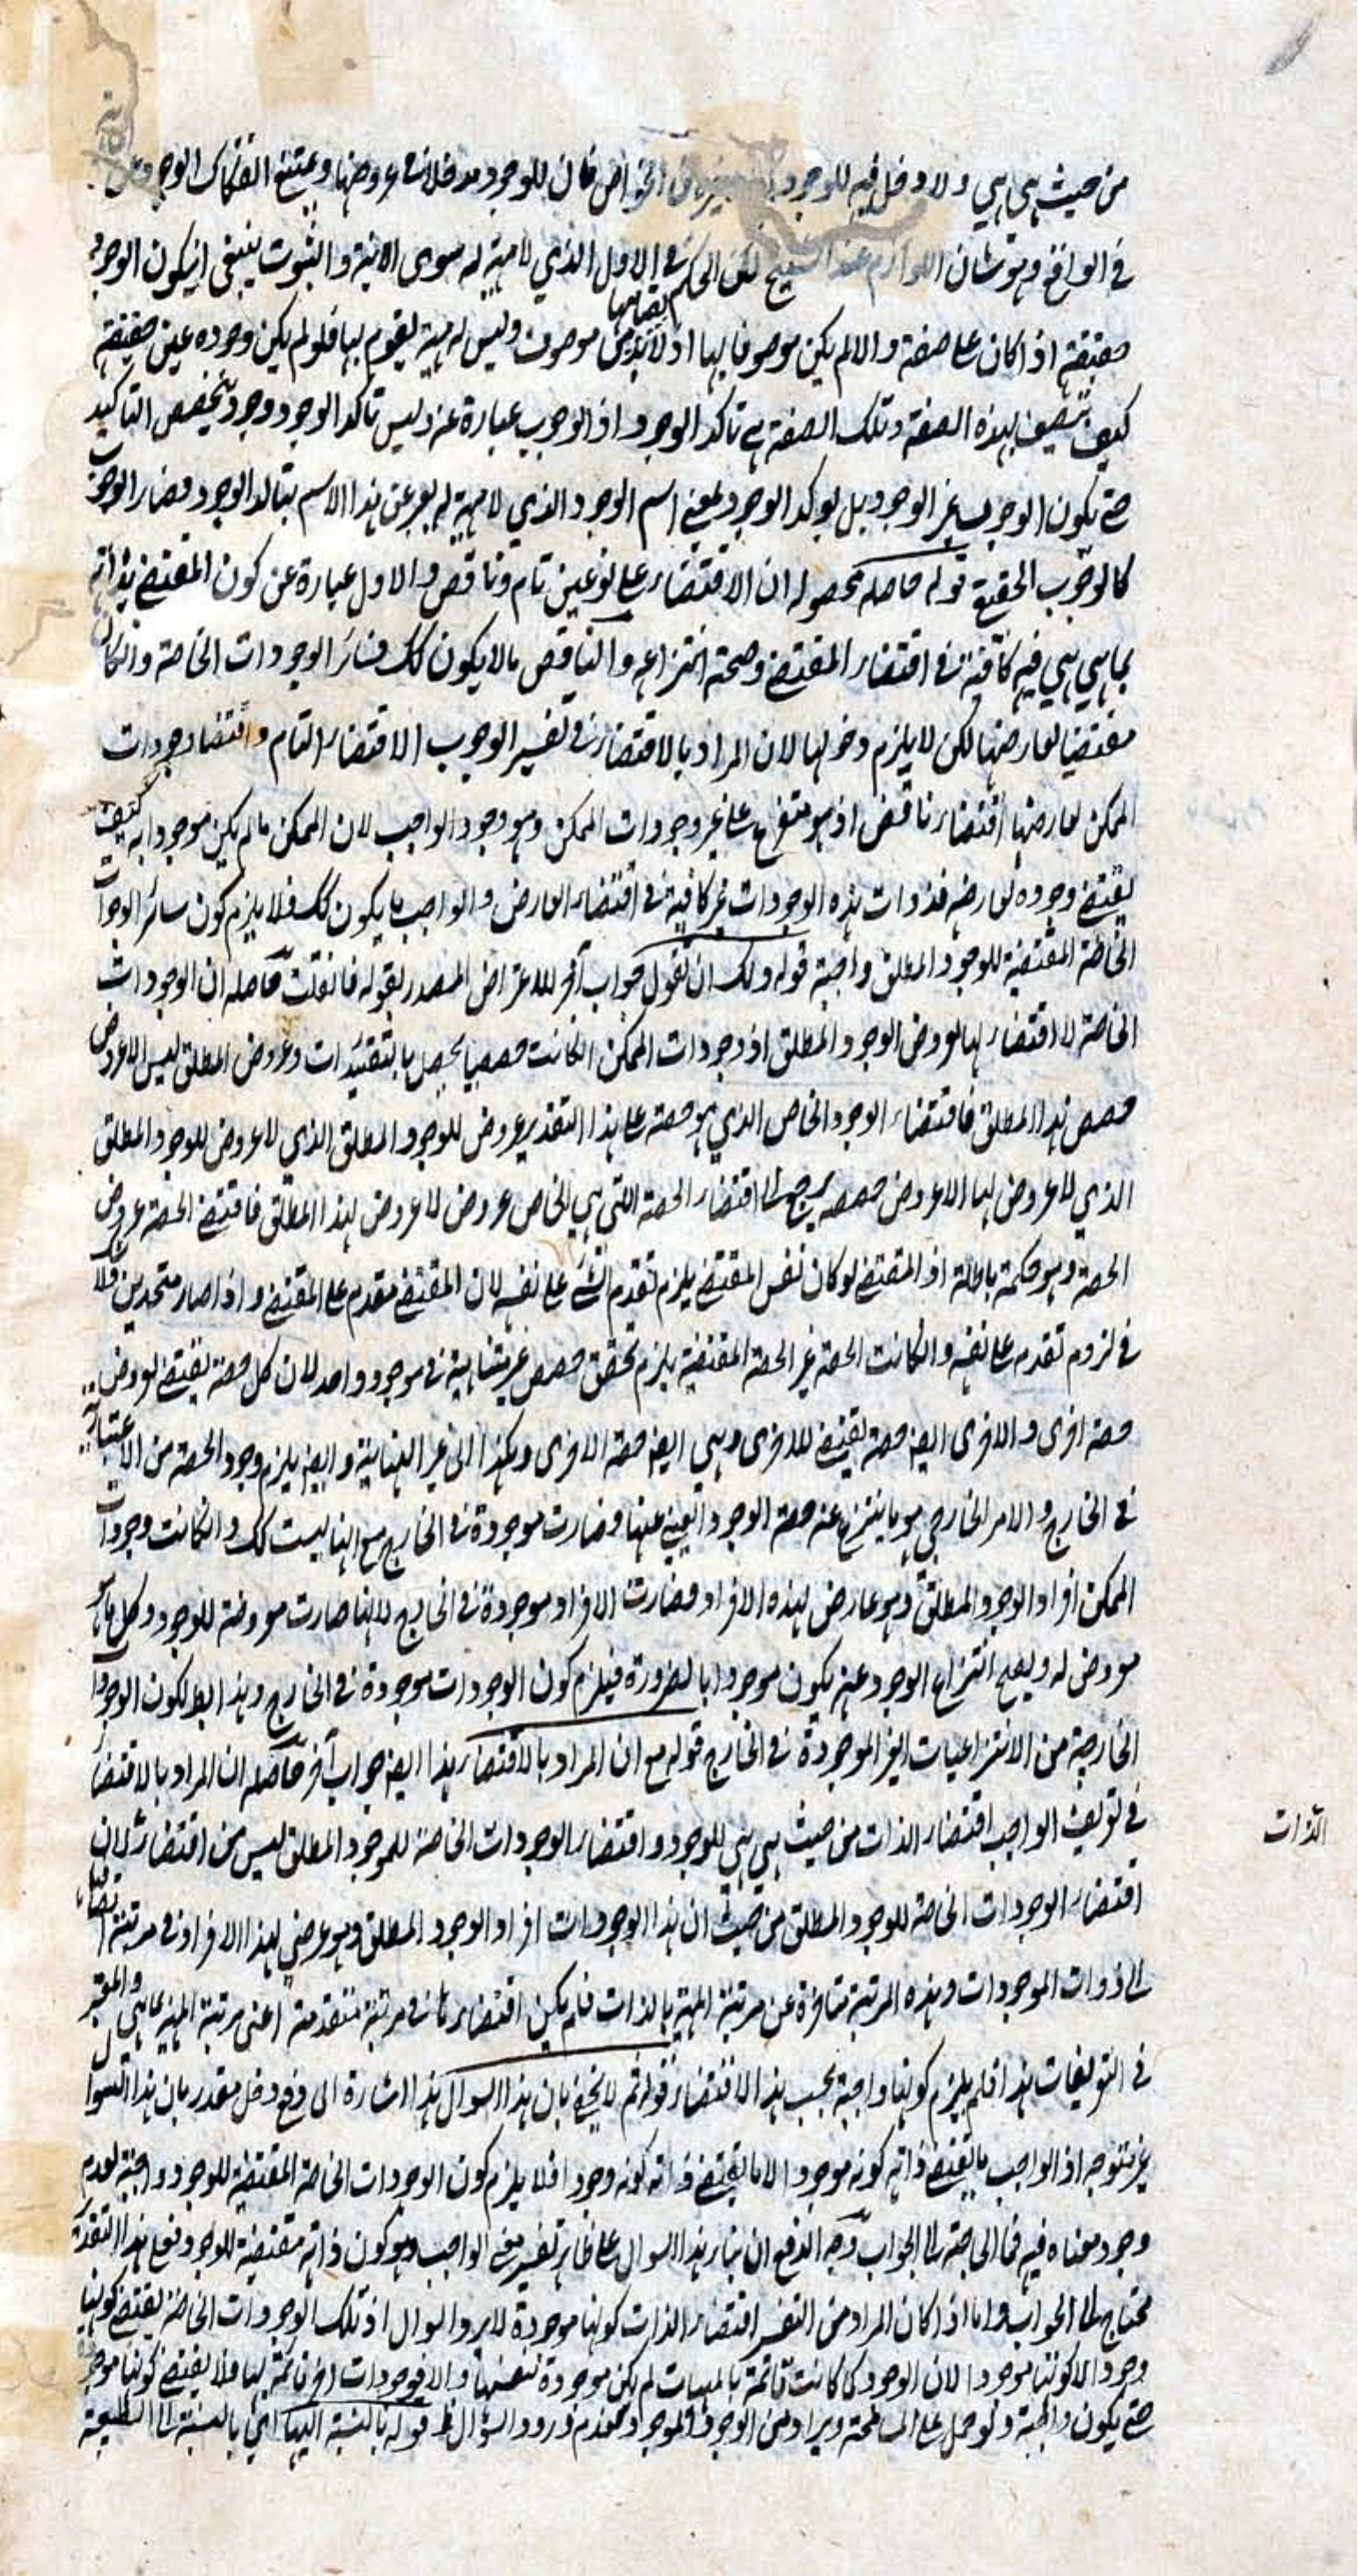 من حيث هي هي ولا دخل فيه للوجود الخواص فان للوجود مدخلا في عروضها ويمتنع انفكاك الوجود عن
في الواقع وهو شان اللوازم عند الشيخ لكن الحكم في الاول الذي لا مهية له سوى الانية والثبوت ينبغي ان يكون الوجود
حقيقته اذا كان على صفة والا لم يكن موصوفا بها اذ لا بد لقيامها من موصوف وليس له مهية يقوم بها فلو لم يكن وجوده عين حقيقته
كيف يتصف بهذه الصفة وتلك الصفة هي تاكد الوجود اذ الوجوب عبارة عنه وليس تاكد الوجود وجود يخصص التاكيد
حتى يكون الوجوب غير الوجود بل يؤكد الوجود يعني اسم الوجود الذي لا مهية له يعبر عن هذا الاسم بتاكد الوجود فصار الوجوب
كالوجوب الحقيقة قوله حاصله محصوله ان الاقتضاء على نوعين تام وناقص والاول عبارة عن كون المقتضي بذاته
بما هي هي فيه كافية في اقتضاء المقتضى وصحة انتزاعه والناقص ما لا يكون كك فسائر الوجودات الخاصة وان كان
مقتضيا لعارضها لكن لا يلزم وجوبها لان المراد بالاقتضاء في تفسير الوجوب الاقتضاء التام واقتضاء وجودات
الممكن لعارضها اقتضاء ناقص اذ هو متفرع على غير وجودات الممكن وهو وجود الواجب لان الممكن ما لم يكن موجودا به كيف
يقتضي وجوده لعارضه فذوات هذه الوجودات غير كافية في اقتضاء العارض والواجب ما يكون كك فلا يلزم كون سائر الوجودات
الخاصة المقتضية للوجود المطلق واجبة قوله ولك ان تقول جواب آخر للاعتراض المصدر بقوله فان قلت حاصله ان الوجودات
الخاصة لا اقتضاء لها لعروض الوجود المطلق اذ وجودات الممكن ان كانت حصصا يحصل بالتقئيدات وعروض المطلق ليس الا عروض
حصص هذا المطلق فاقتضاء الوجود الخاص الذي هو حصة على هذا التقدير عروض للوجود المطلق الذي لا عروض للوجود المطلق
الذي لا عروض لها الا عروض حصصه يرجع الى اقتضاء الحصة التي هي الخاص عروض لا عروض لهذا المطلق فاقتضى الحصة عروض
الحصة وهو حكمة باطلة اذ المقتضى لو كان نفس المقتضي يلزم تقدم الشئ على نفسه لان المقتضي مقدم على المقتضى واذا صار متحدين فلا
في لزوم تقدمه على نفسه وان كانت الحصة غير الحصة المقتضية يلزم تحقق حصص غير متناهية في موجود واحد لان كل حصة يقتضي لعروض
حصة اخرى والاخرى ايضا حصة يقتضي للاخرى وهي ايضا حصة الاخرى وهكذا الى غير النهاية وايضا يلزم وجود الحصة من الاعتبارية
في الخارج والامر الخارجي هو ما ينتزع عنه حصة الوجود انتفى عنها فصارت موجودة في الخارج مع انها ليست كك وان كانت وجودات
الممكن افراد الوجود المطلق وهو عارض لهذه الافراد فصارت الافراد موجودة في الخارج لانها صارت معروضة للوجود وكل ما
معروض له ويصح انتزاع الوجود عنه يكون موجودا بالضرورة فيلزم كون الوجودات موجودة في الخارج وهذا ايضا لكون الوجود
الخارجية من الانتزاعيات الغير الموجودة في الخارج قوله مع ان المراد بالاقتضاء هذا ايضا جواب آخر حاصله ان المراد بالاقتضاء
في تعريف الواجب اقتضاء الذات من حيث هي هي للوجود واقتضاء الوجودات الخاصة للوجود المطلق ليس من اقتضاء الذات لان
اقتضاء الوجودات الخاصة للوجود المطلق من حيث ان هذا الوجودات افراد الوجود المطلق وهو عرضي لهذا الافراد في مرتبة
الى ذوات الموجودات وهذه المرتبة متاخرة عن مرتبة المهية بالذات فلم يكن اقتضاءها في مرتبة متقدمة اعني مرتبة المهية بما هي والمعتبر
في التعريفات هذا فلم يلزم كونها واجبة بحسب هذا الاقتضاء قوله ثم لا يخفى بان هذا السوال هذا اشارة الى دفع دخل مقدر بان هذا السوال
غير متوجه اذ الواجب ما يقتضي ذاته كونه موجودا لا ما يقتضي ذاته كونه وجودا فلا يلزم كون الوجودات الخاصة المقتضية للوجود واجبة لعدم
وجود معناه فيه فما الحاجة الى الجواب وجه الدفع ان بناء هذا السوال على ظاهر تفسير معنى الواجب وهو كون ذاته مقتضية للوجود فعلى هذا التقدير
محتاج الى الجواب واما اذا كان المراد من التفسير اقتضاء الذات كونها موجودة لا يرد السوال اذ تلك الوجودات الخاصة يقتضي كونها
وجودا لا كونها موجودا لان الوجود كما كانت قائمة بالمهيات لم يكن موجودة بنفسها والا فوجودات اخر قائمة بها فلا يقتضي كونها موجودة
حتى يكون واجبة ولو حمل على المسامحة ويراد من الوجود الموجود فعدم ورود السؤال ظ قوله بالنسبة اليها اي بالنسبة الى الطبيعة
الذات